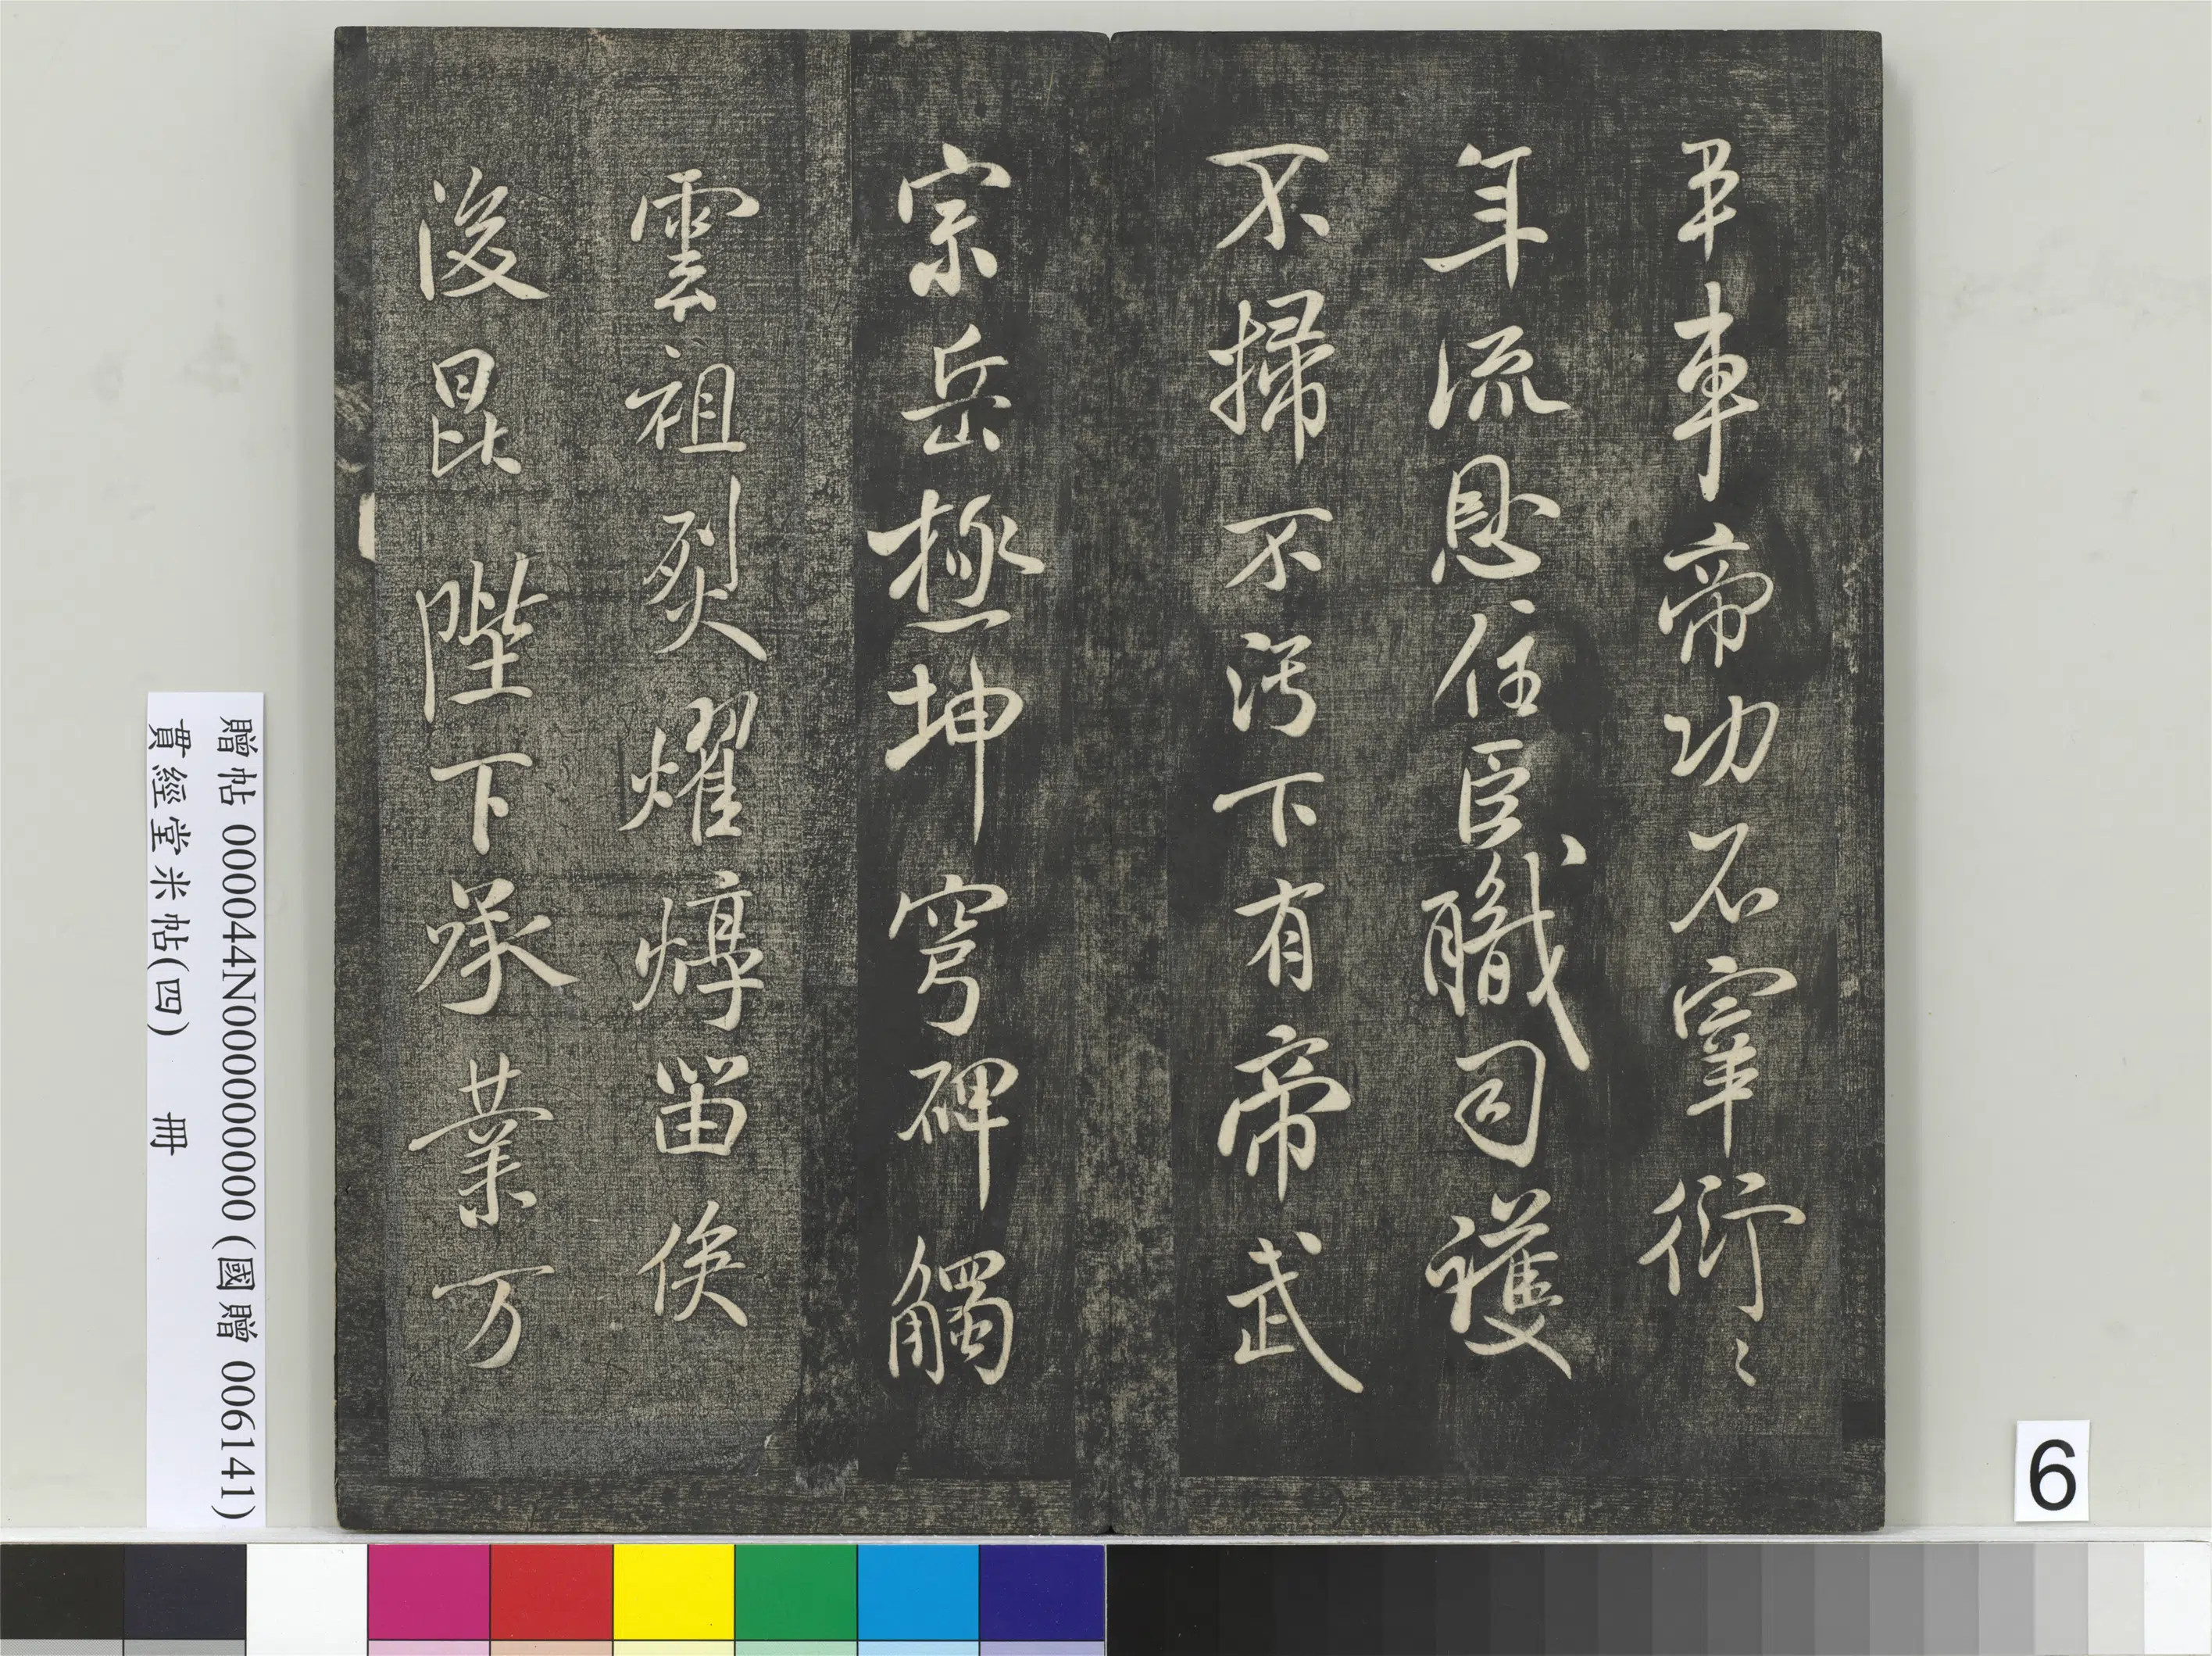 車帝功石宰衍〻
年流恩住臣職司護
不掃不污下有帝武
宗岳極坤穹碑觸
雲祖烈燿焞留俟
後昆陛下承業万
贈帖 000044N000000000 (國贈 006141)
貫經堂米帖(四) 冊
6